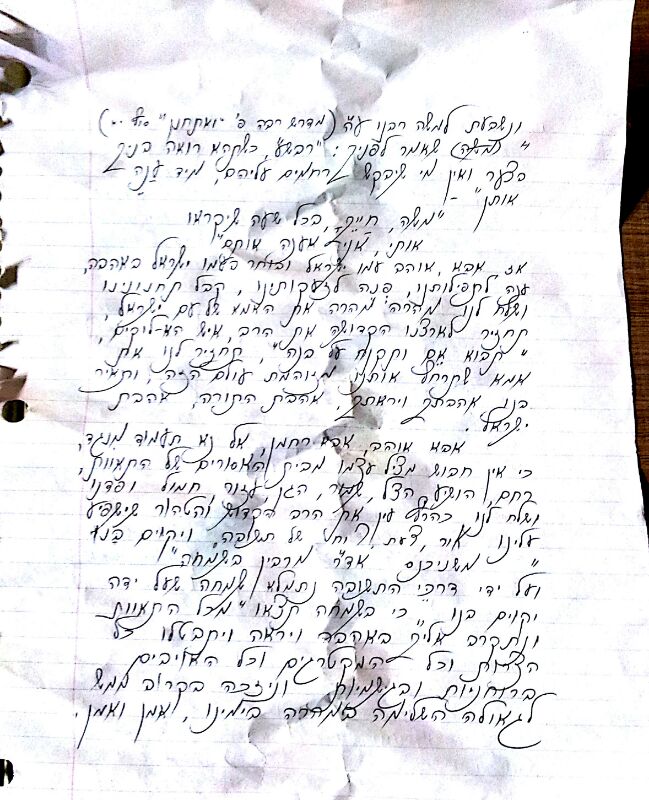 ונשבעת למשה רבנו ע"ה (מדרש רבה פ' "ואתחנן"
" (משה) שאמר לפניך: "רבש"ע כשתהא רואה בניך
בצער ואין מי שיבקש רחמים עליהם, מיד עֲנֵה
אותן" -
"משה, חייך, בכל שעה שיקראו
אותי, אני אענה אותם"
אז אבא, אוהב עמו ישראל ובוחר בעמו ישראל באהבה,
ענה לתפילותנו, פנה לזעקותינו, קבל תחנונינו
ושלח לנו מהרה מהרה את האמא של עם ישראל,
תחזיר לארצנו הקדושה את הרב, איש הא-לוקים,
"תבוא אם ותקנח על בנה", תחזיר לנו את
אמא שתרחץ אותנו מזוהמת עולם הזה, ותאיר
בנו אהבתך ויראתך, אהבת התורה, אהבת
ישראל.
אבא אוהב, אבא רחמן, אל נא תעמוד מנגד,
כי אין חבוש מציל עצמו מבית האסורים של התאוות,
רחם, הושיע הצל, שמור, הגן, עזור חמול ופדנו
ושלח לנו כהרף עין את הרב הקדוש והטהור שישפיע
עלינו אור, דעת, ורוח של תשובה, ויקוים בנו
" משניכנס אדר מרבין בשמחה"
ועל ידי דרכי התשובה נתמלא שמחה שעל ידה
יקוים בנו "כי בשמחה תצאו" מכל התאוות
ונתקרב אליך באהבה ויראה ויתבטלו כל
הצרות וכל המקטרגים וכל האויבים
ברוחניות ובגשמיות וניזכה בקרוב ממש
לגאולה השלימה במהרה בימינו, אמן ואמן.